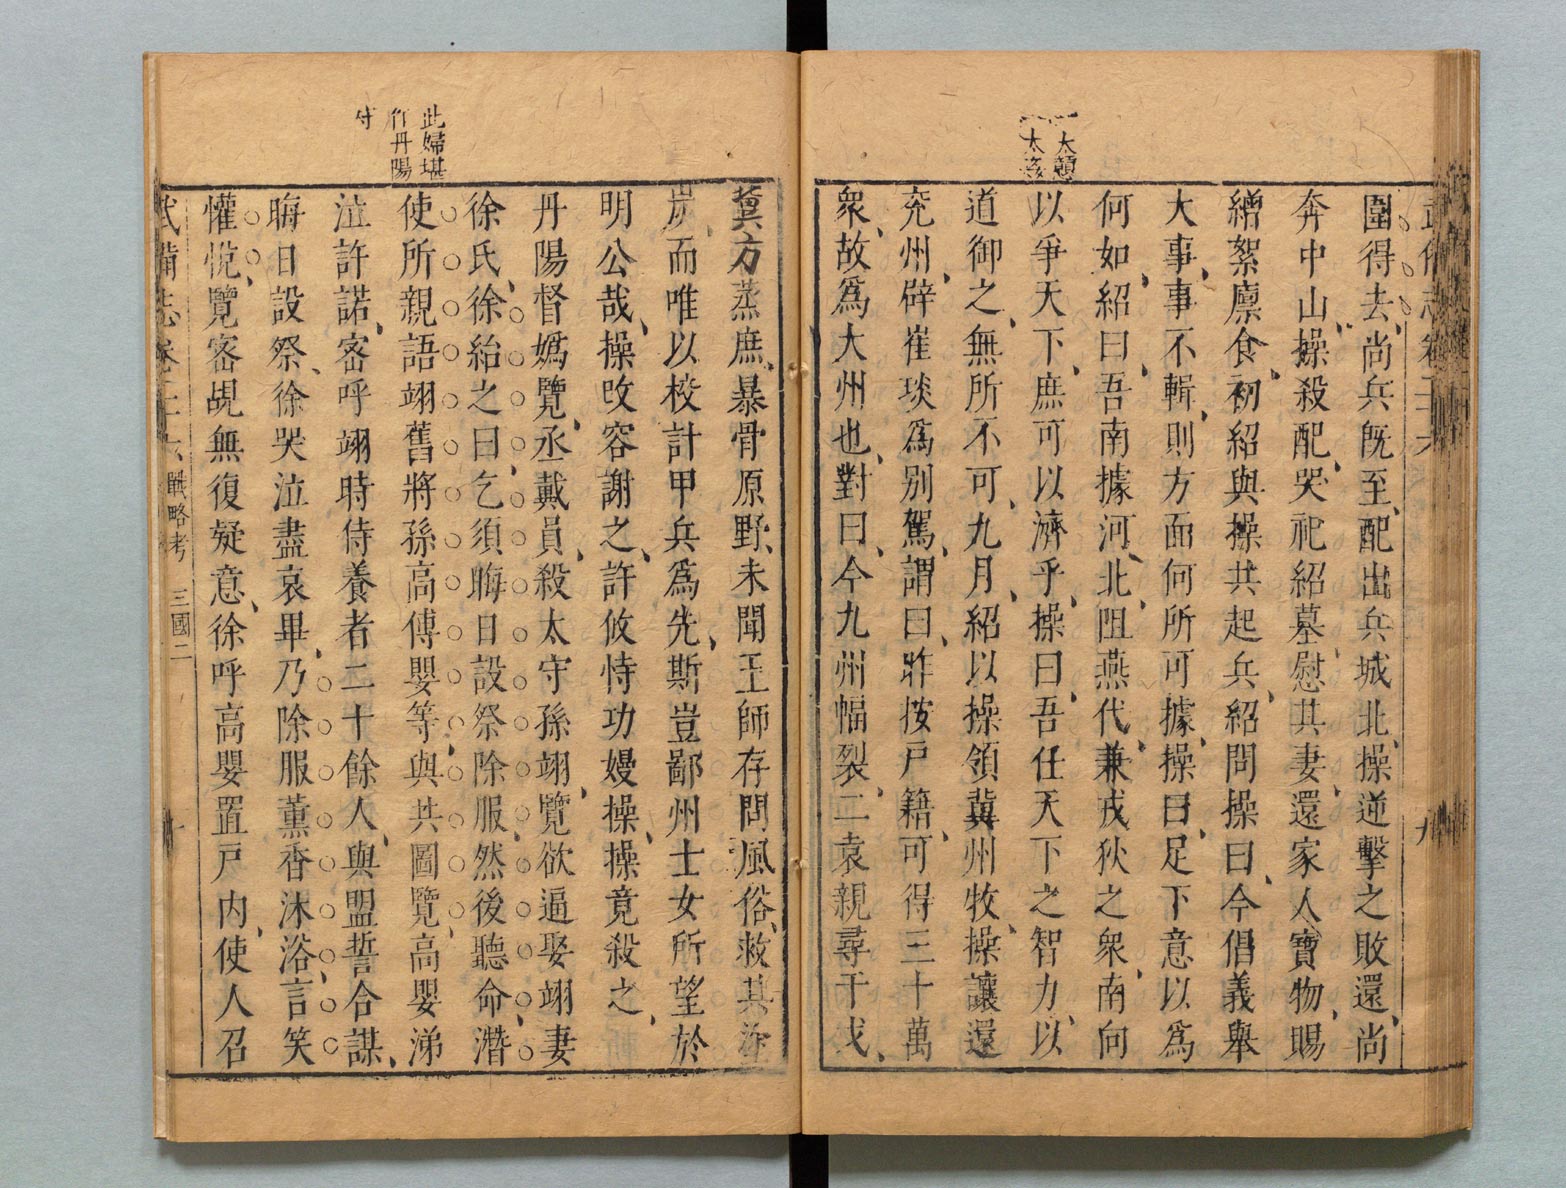 大顛
大姦
武備志卷二十六
九
圍得去尚兵既至配出兵城北操逆擊之敗還尚
奔中山操殺配哭祀紹墓慰其妻還家人寶物賜
繒絮廩食初紹與操共起兵紹問操曰今倡義舉
大事事不輯則方面何所可據操曰足下意以爲
何如紹曰吾南據河北阻燕代兼戎狄之衆南向
以爭天下庶可以濟乎操曰吾任天下之智力以
道御之無所不可九月紹以操領冀州牧操讓還
兖州辟崔琰爲别駕謂曰昨按戸籍可得三十萬
衆故爲大州也對曰今九州幅裂二袁親尋干戈
此婦堪
作丹陽
守
冀方蒸庶暴骨原野未聞王師存問風俗救其塗
炭而唯以校計甲兵爲先斯豈鄙州士女所望於
明公哉操改容謝之許攸恃功嫚操操竟殺之
丹陽督嬀覽丞戴員殺太守孫翊覽欲逼娶翊妻
徐氏徐紿之曰乞須晦日設祭除服然後聽命潛
使所親語翊舊將孫高傅嬰等與共圖覽高嬰涕
泣許諾宻呼翊時侍養者二十餘人與盟誓合謀
晦日設祭徐哭泣盡哀畢乃除服薰香沐浴言笑
懽悅覽宻覘無復疑意徐呼高嬰置戸内使人召
武備志卷二十六 戰略考 三國二
十